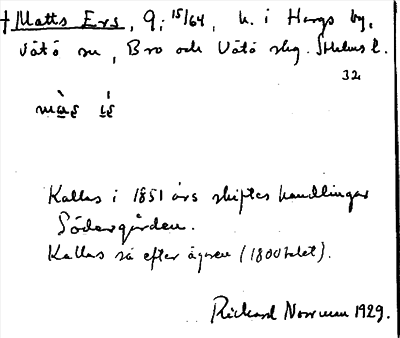 † Matts Ers, 9; 15/64, h. i Hargs by,
Vätö sn, Bro och Vätö skg. Sthlms l.
32
Kallas i 1851 års skifteshandlingar
Södergården.
Kallas så efter ägaren (1800talet).
Rickard Norrman 1929.